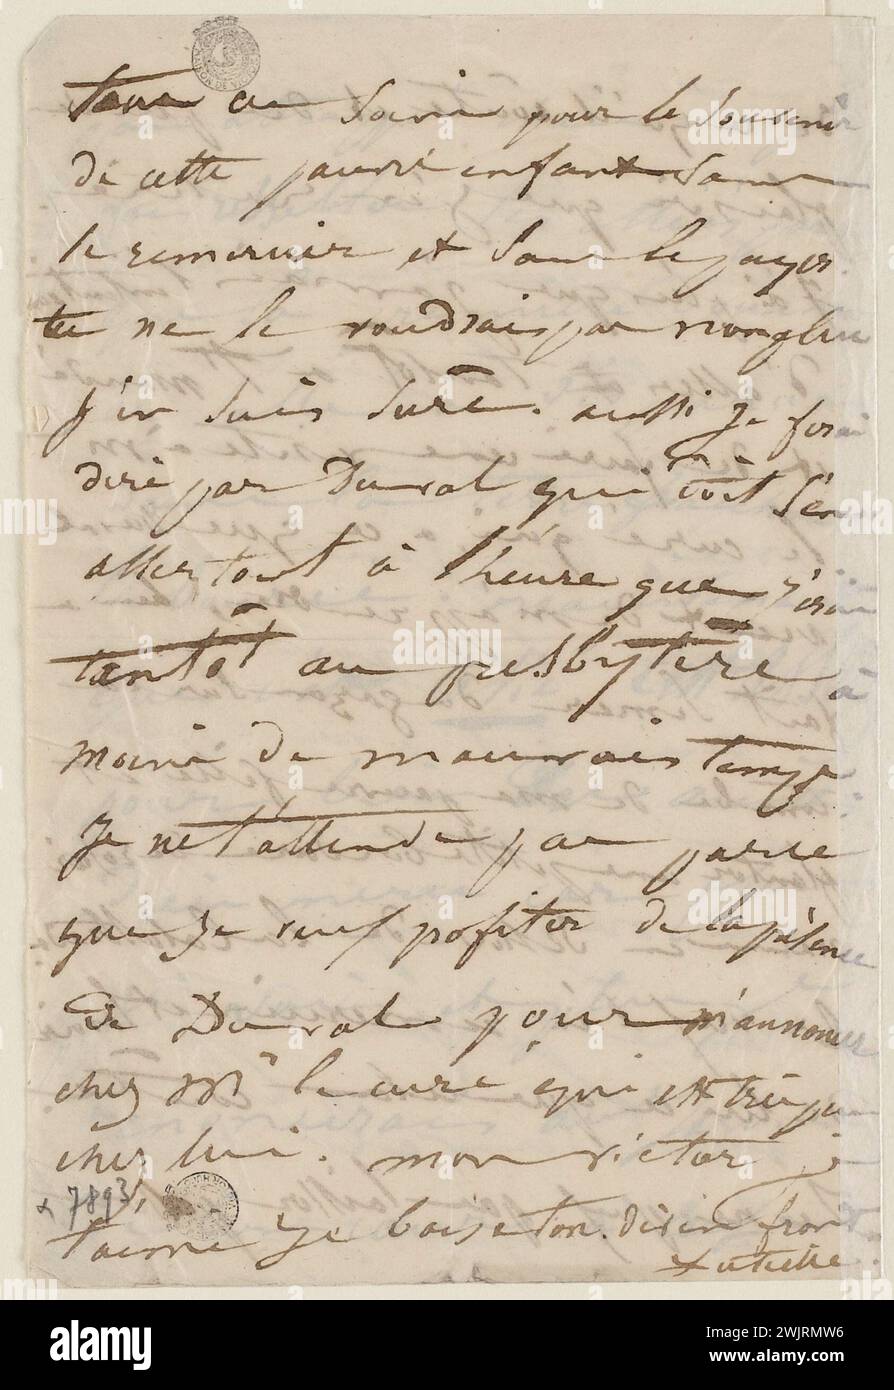 tous ce soins pour le souvenir
de cette pauvre enfant sans
le remercier et sans le payer
tu ne le voudrais pas non plus
j'en suis sûre. aussi je ferai
dire par Duval qui doit s'en
aller tout à l'heure que j'irai
tantôt au presbytère à
moins de mauvais temps
Je ne t'attends pas parce
que je veux profiter de la présence
de Duval pour m'annoncer
chez Mr le curé qui est très peu
chez lui. mon victor je
t'aime je baise ton divin front
Juliette
7893
alamy
Image ID: 2WJRMW6
www.alamy.com